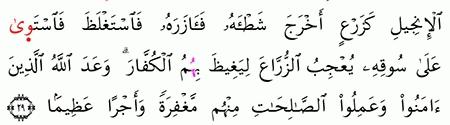 ٱلْإِنجِيلِ كَزَرْعٍ أَخْرَجَ شَطْـَٔهُۥ فَـَٔازَرَهُۥ فَٱسْتَغْلَظَ فَٱسْتَوَىٰ
عَلَىٰ سُوقِهِۦ يُعْجِبُ ٱلزُّرَّاعَ لِيَغِيظَ بِهِمُ ٱلْكُفَّارَ ۗ وَعَدَ ٱللَّهُ ٱلَّذِينَ
ءَامَنُوا۟ وَعَمِلُوا۟ ٱلصَّـٰلِحَـٰتِ مِنْهُم مَّغْفِرَةً وَأَجْرًا عَظِيمًۢا ٢٩